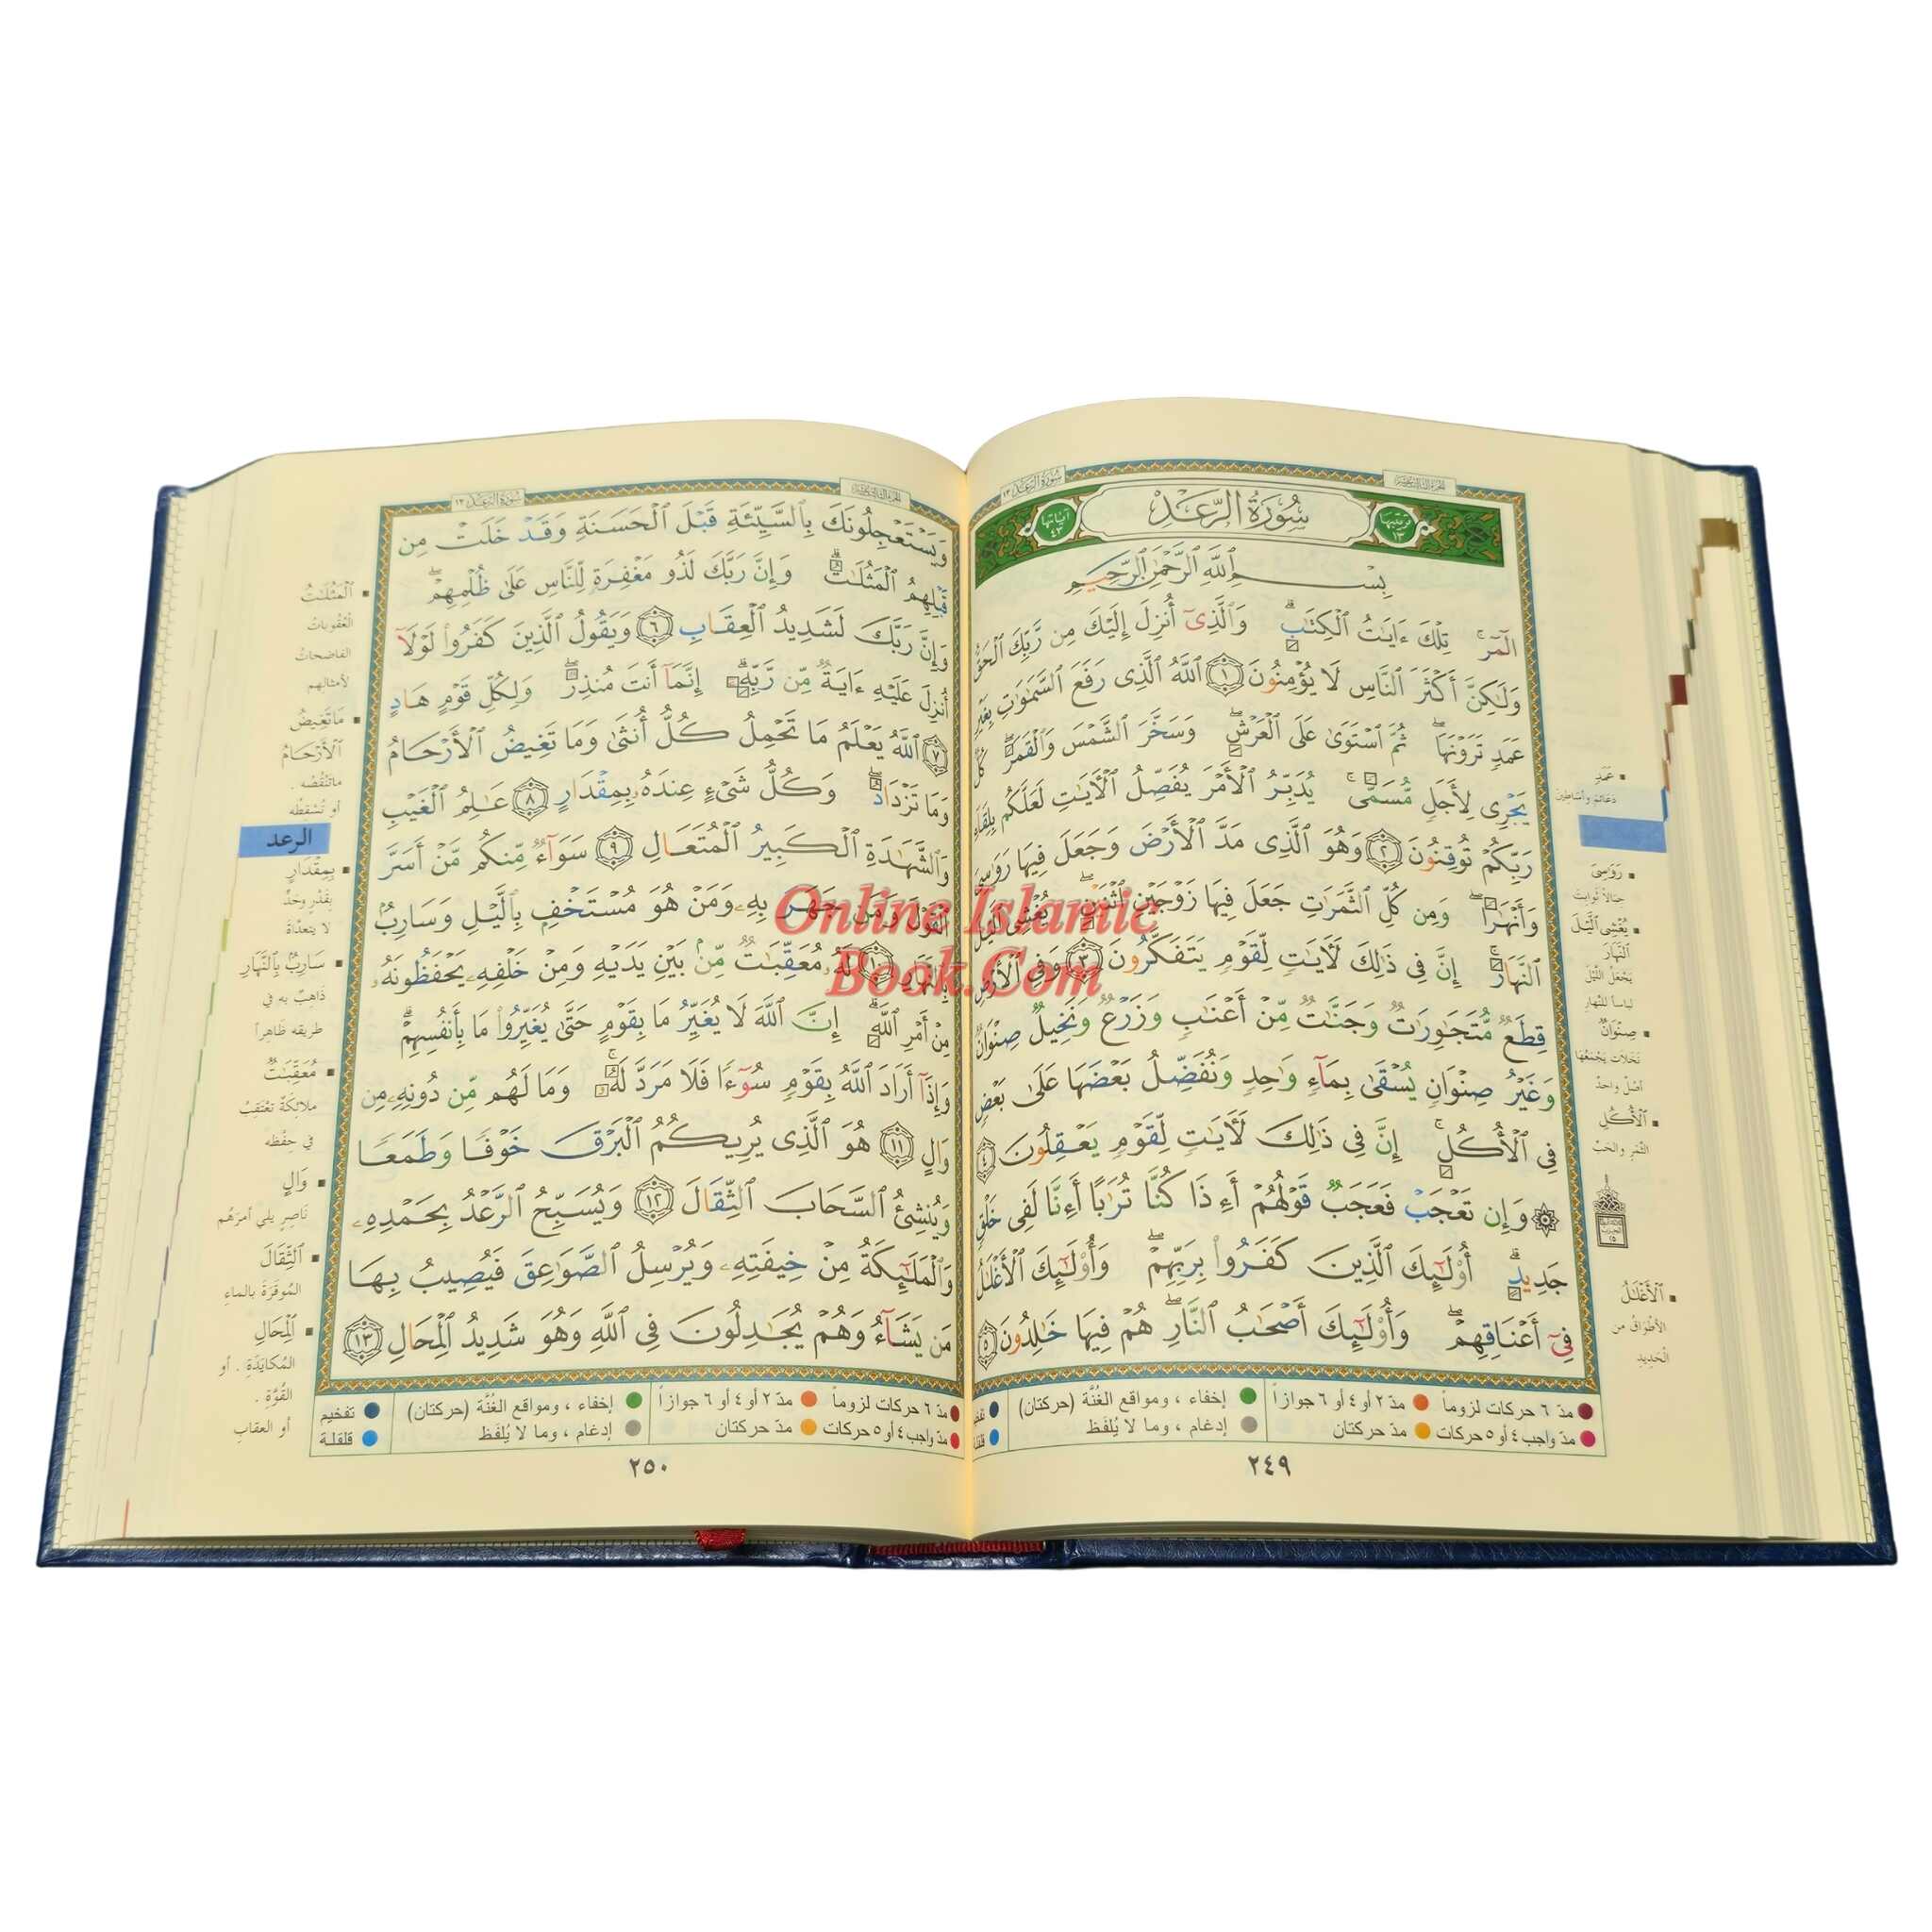 سُورَةُ الرَّعْدِ ١٣
سُورَةُ الرَّعْدِ
تَرتيبها ١٣
آياتها ٤٣
بِسْمِ ٱللَّهِ ٱلرَّحْمَٰنِ ٱلرَّحِيمِ
الٓمٓر ۚ تِلْكَ ءَايَٰتُ ٱلْكِتَٰبِ ۗ وَٱلَّذِىٓ أُنزِلَ إِلَيْكَ مِن رَّبِّكَ ٱلْحَقُّ
وَلَٰكِنَّ أَكْثَرَ ٱلنَّاسِ لَا يُؤْمِنُونَ ١ ٱللَّهُ ٱلَّذِى رَفَعَ ٱلسَّمَٰوَٰتِ بِغَيْرِ
عَمَدٍ تَرَوْنَهَا ۖ ثُمَّ ٱسْتَوَىٰ عَلَى ٱلْعَرْشِ ۖ وَسَخَّرَ ٱلشَّمْسَ وَٱلْقَمَرَ ۖ كُلٌّ
يَجْرِى لِأَجَلٍ مُّسَمًّى ۚ يُدَبِّرُ ٱلْأَمْرَ يُفَصِّلُ ٱلْأَيَٰتِ لَعَلَّكُم بِلِقَآءِ
رَبِّكُمْ تُوقِنُونَ ٢ وَهُوَ ٱلَّذِى مَدَّ ٱلْأَرْضَ وَجَعَلَ فِيهَا رَوَٰسِىَ
وَأَنْهَٰرًا ۖ وَمِن كُلِّ ٱلثَّمَرَٰتِ جَعَلَ فِيهَا زَوْجَيْنِ ٱثْنَيْنِ ۖ يُغْشِى ٱلَّيْلَ
ٱلنَّهَارَ ۚ إِنَّ فِى ذَٰلِكَ لَأَيَٰتٍ لِّقَوْمٍ يَتَفَكَّرُونَ ٣ وَفِى ٱلْأَرْضِ
قِطَعٌ مُّتَجَٰوِرَٰتٌ وَجَنَّٰتٌ مِّنْ أَعْنَٰبٍ وَزَرْعٌ وَنَخِيلٌ صِنْوَانٌ
وَغَيْرُ صِنْوَانٍ يُسْقَىٰ بِمَآءٍ وَٰحِدٍ وَنُفَضِّلُ بَعْضَهَا عَلَىٰ بَعْضٍ
فِى ٱلْأُكُلِ ۚ إِنَّ فِى ذَٰلِكَ لَأَيَٰتٍ لِّقَوْمٍ يَعْقِلُونَ ٤
۞ وَإِن تَعْجَبْ فَعَجَبٌ قَوْلُهُمْ أَءِذَا كُنَّا تُرَٰبًا أَءِنَّا لَفِى خَلْقٍ
جَدِيدٍ ۗ أُو۟لَٰٓئِكَ ٱلَّذِينَ كَفَرُوا۟ بِرَبِّهِمْ ۖ وَأُو۟لَٰٓئِكَ ٱلْأَغْلَٰلُ
فِىٓ أَعْنَاقِهِمْ ۖ وَأُو۟لَٰٓئِكَ أَصْحَٰبُ ٱلنَّارِ ۖ هُمْ فِيهَا خَٰلِدُونَ ٥
عَمَدٍ
دعائم وأساطين
رَوَٰسِىَ
جبالاً ثوابت
يُغْشِى ٱلَّيْلَ
ٱلنَّهَارَ
يجعل الليل
لباساً للنهار
صِنْوَانٌ
نخلات يجمعها
أصل واحد
ٱلْأُكُلِ
الثمر والحب
ٱلْأَغْلَٰلُ
الأطواق من
الحديد
مدّ ٦ حركات لزوماً
مدّ ٢ أو ٤ أو ٦ جوازاً
إخفاء ، ومواقع الغُنَّة (حركتان)
مدّ واجب ٤ أو ٥ حركات
مدّ حركتان
إدغام ، وما لا يُلفَظ
٢٤٩
سُورَةُ الرَّعْدِ ١٣
وَيَسْتَعْجِلُونَكَ بِٱلسَّيِّئَةِ قَبْلَ ٱلْحَسَنَةِ وَقَدْ خَلَتْ مِن
قَبْلِهِمُ ٱلْمَثُلَٰتُ ۗ وَإِنَّ رَبَّكَ لَذُو مَغْفِرَةٍ لِّلنَّاسِ عَلَىٰ ظُلْمِهِمْ ۖ
وَإِنَّ رَبَّكَ لَشَدِيدُ ٱلْعِقَابِ ٦ وَيَقُولُ ٱلَّذِينَ كَفَرُوا۟ لَوْلَآ
أُنزِلَ عَلَيْهِ ءَايَةٌ مِّن رَّبِّهِۦٓ ۗ إِنَّمَآ أَنتَ مُنذِرٌ ۖ وَلِكُلِّ قَوْمٍ هَادٍ
٧ ٱللَّهُ يَعْلَمُ مَا تَحْمِلُ كُلُّ أُنثَىٰ وَمَا تَغِيضُ ٱلْأَرْحَامُ
وَمَا تَزْدَادُ ۖ وَكُلُّ شَىْءٍ عِندَهُۥ بِمِقْدَارٍ ٨ عَٰلِمُ ٱلْغَيْبِ
وَٱلشَّهَٰدَةِ ٱلْكَبِيرُ ٱلْمُتَعَالِ ٩ سَوَآءٌ مِّنكُم مَّنْ أَسَرَّ
ٱلْقَوْلَ وَمَن جَهَرَ بِهِۦ وَمَنْ هُوَ مُسْتَخْفٍۭ بِٱلَّيْلِ وَسَارِبٌۢ
بِٱلنَّهَارِ ١٠ لَهُۥ مُعَقِّبَٰتٌ مِّنۢ بَيْنِ يَدَيْهِ وَمِنْ خَلْفِهِۦ يَحْفَظُونَهُۥ
مِنْ أَمْرِ ٱللَّهِ ۗ إِنَّ ٱللَّهَ لَا يُغَيِّرُ مَا بِقَوْمٍ حَتَّىٰ يُغَيِّرُوا۟ مَا بِأَنفُسِهِمْ ۗ
وَإِذَآ أَرَادَ ٱللَّهُ بِقَوْمٍ سُوٓءًا فَلَا مَرَدَّ لَهُۥ ۚ وَمَا لَهُم مِّن دُونِهِۦ مِن
وَالٍ ١١ هُوَ ٱلَّذِى يُرِيكُمُ ٱلْبَرْقَ خَوْفًا وَطَمَعًا
وَيُنشِئُ ٱلسَّحَابَ ٱلثِّقَالَ ١٢ وَيُسَبِّحُ ٱلرَّعْدُ بِحَمْدِهِۦ
وَٱلْمَلَٰٓئِكَةُ مِنْ خِيفَتِهِۦ وَيُرْسِلُ ٱلصَّوَٰعِقَ فَيُصِيبُ بِهَا
مَن يَشَآءُ وَهُمْ يُجَٰدِلُونَ فِى ٱللَّهِ وَهُوَ شَدِيدُ ٱلْمِحَالِ ١٣
ٱلْمَثُلَٰتُ
العقوبات
الفاضحات
لأمثالهم
مَا تَغِيضُ
ٱلْأَرْحَامُ
ما تنقصه .
أو تسقطه
الرعد
بِمِقْدَارٍ
بقدر وحد
لا يتعداه
سَارِبٌۢ بِٱلنَّهَارِ
ذاهب به في
طريقه ظاهراً
مُعَقِّبَٰتٌ
ملائكة تعتقب
في حفظه
وَالٍ
ناصر يلي أمرهم
ٱلثِّقَالَ
الموقرة بالماء
ٱلْمِحَالِ
المكايدة . أو
القوة .
أو العقاب
مدّ ٦ حركات لزوماً
مدّ ٢ أو ٤ أو ٦ جوازاً
إخفاء ، ومواقع الغُنَّة (حركتان)
تفخيم
مدّ واجب ٤ أو ٥ حركات
مدّ حركتان
إدغام ، وما لا يُلفَظ
قلقلة
٢٥٠
Online Islamic
Book.Com